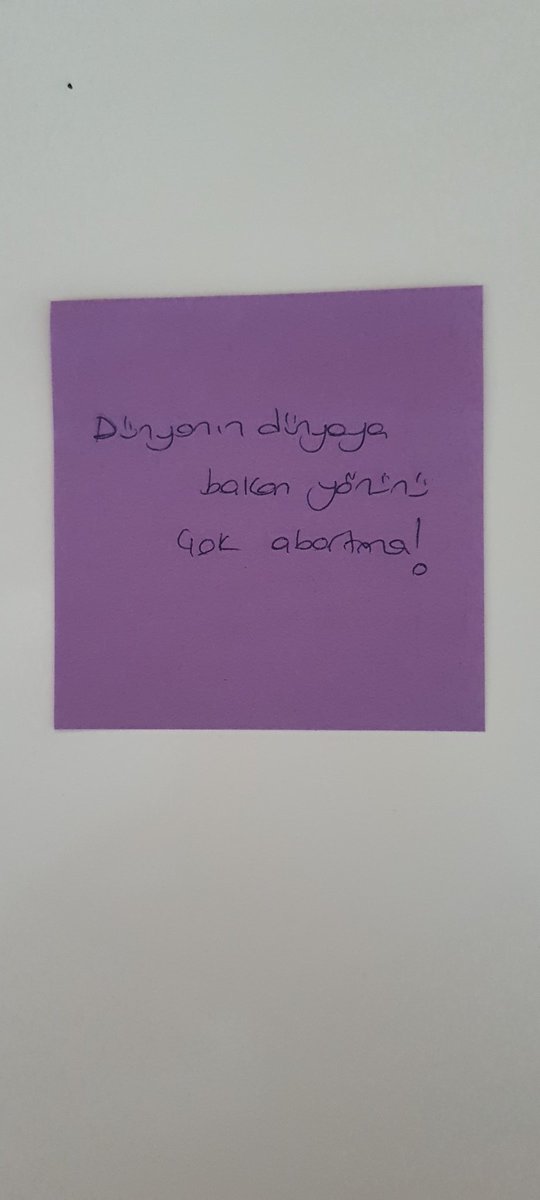 Dünyanın dünyaya
bakan yönünü
Çok abartma!